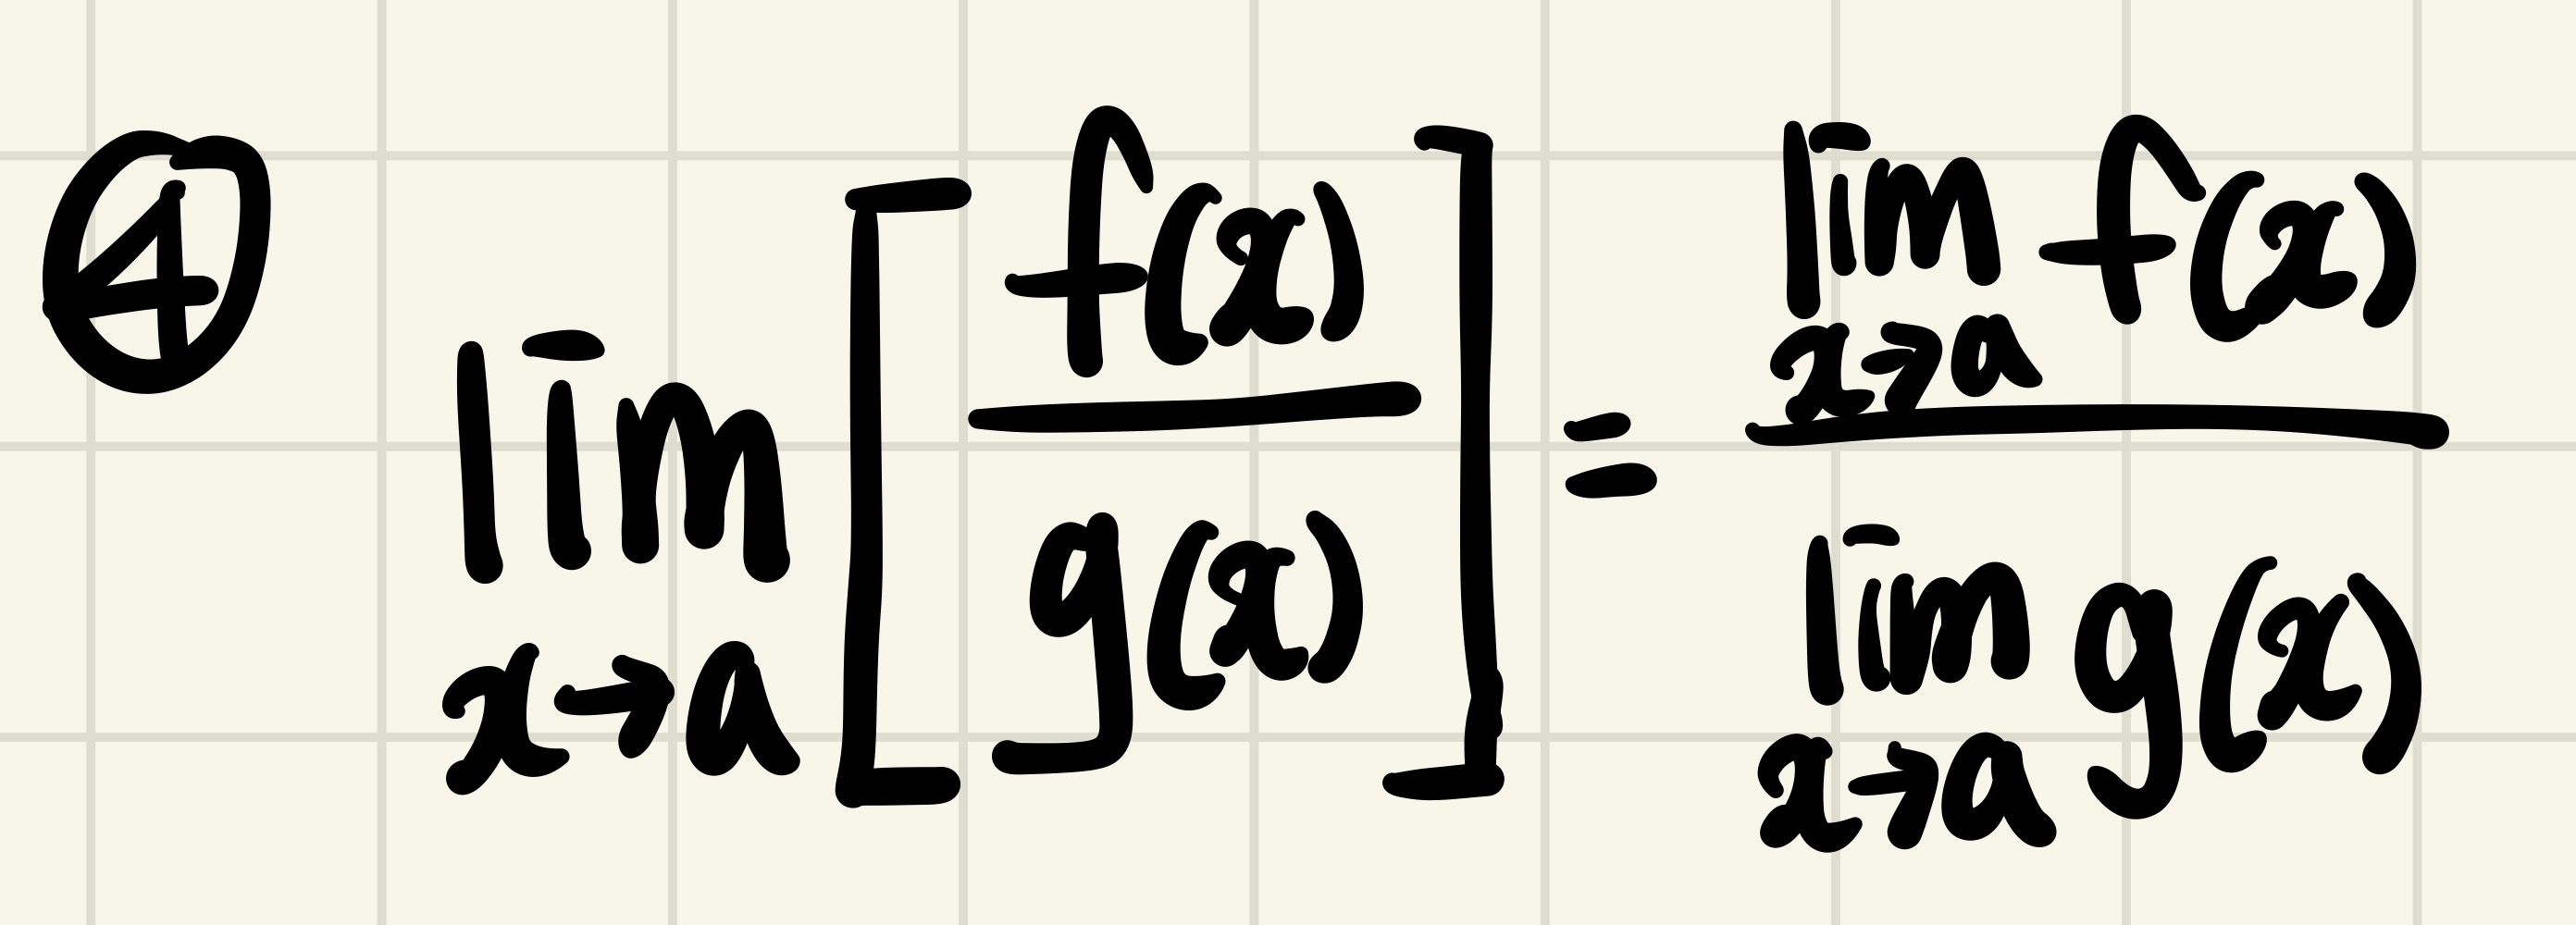 ④ lim x→a [ f(x) / g(x) ] = lim x→a f(x) / lim x→a g(x)